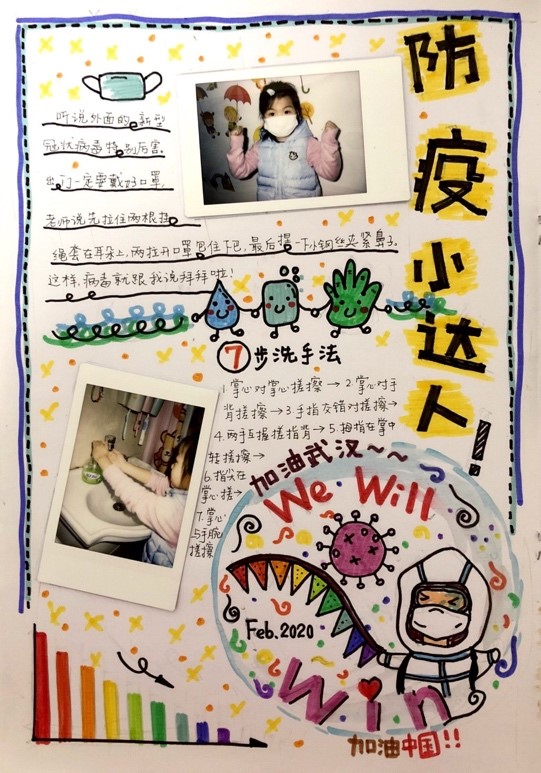 防疫小达人!
听说外面的新型
冠状病毒特别厉害。
出门一定要戴好口罩。
老师说先拉住两根挂
绳套在耳朵上,两拉开口罩包住下巴,最后提一下小钢丝夹紧鼻子。
这样,病毒就跟我说拜拜啦!
7步洗手法
1.掌心对掌心搓擦→2.掌心对手
背搓擦→3手指交错对搓擦→
4.两手互握搓指背→5.拇指在掌中
转搓擦→
6.指尖在
掌心搓→
7.掌心
与手腕
搓擦
加油武汉~~
We Will
Feb.2020
Win
加油中国!!